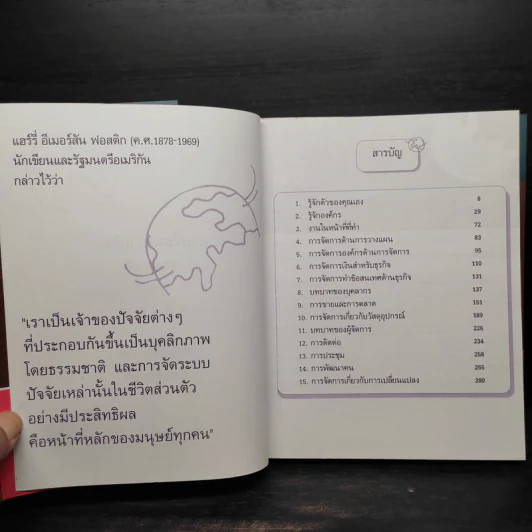 แฮร์รี่ อีเมอร์สัน ฟอสดิก (ค.ศ.1878-1969)
นักเขียนและรัฐมนตรีอเมริกัน
กล่าวไว้ว่า
"เราเป็นเจ้าของปัจจัยต่างๆ
ที่ประกอบกันขึ้นเป็นบุคลิกภาพ
โดยธรรมชาติ และการจัดระบบ
ปัจจัยเหล่านั้นในชีวิตส่วนตัว
อย่างมีประสิทธิผล
คือหน้าที่หลักของมนุษย์ทุกคน"
สารบัญ
1. รู้จักตัวของคุณเอง 8
2. รู้จักองค์กร 29
3. งานในหน้าที่ที่ทำ 72
4. การจัดการด้านการวางแผน 83
5. การจัดการองค์กรด้านการจัดการ 95
6. การจัดการเงินสำหรับธุรกิจ 110
7. การจัดการทำข้อสนเทศด้านธุรกิจ 131
8. บทบาทของบุคลากร 137
9. การขายและการตลาด 151
10. การจัดการเกี่ยวกับวัสดุอุปกรณ์ 189
11. บทบาทของผู้จัดการ 226
12. การติดต่อ 234
13. การประชุม 258
14. การพัฒนาคน 265
15. การจัดการเกี่ยวกับการเปลี่ยนแปลง 280